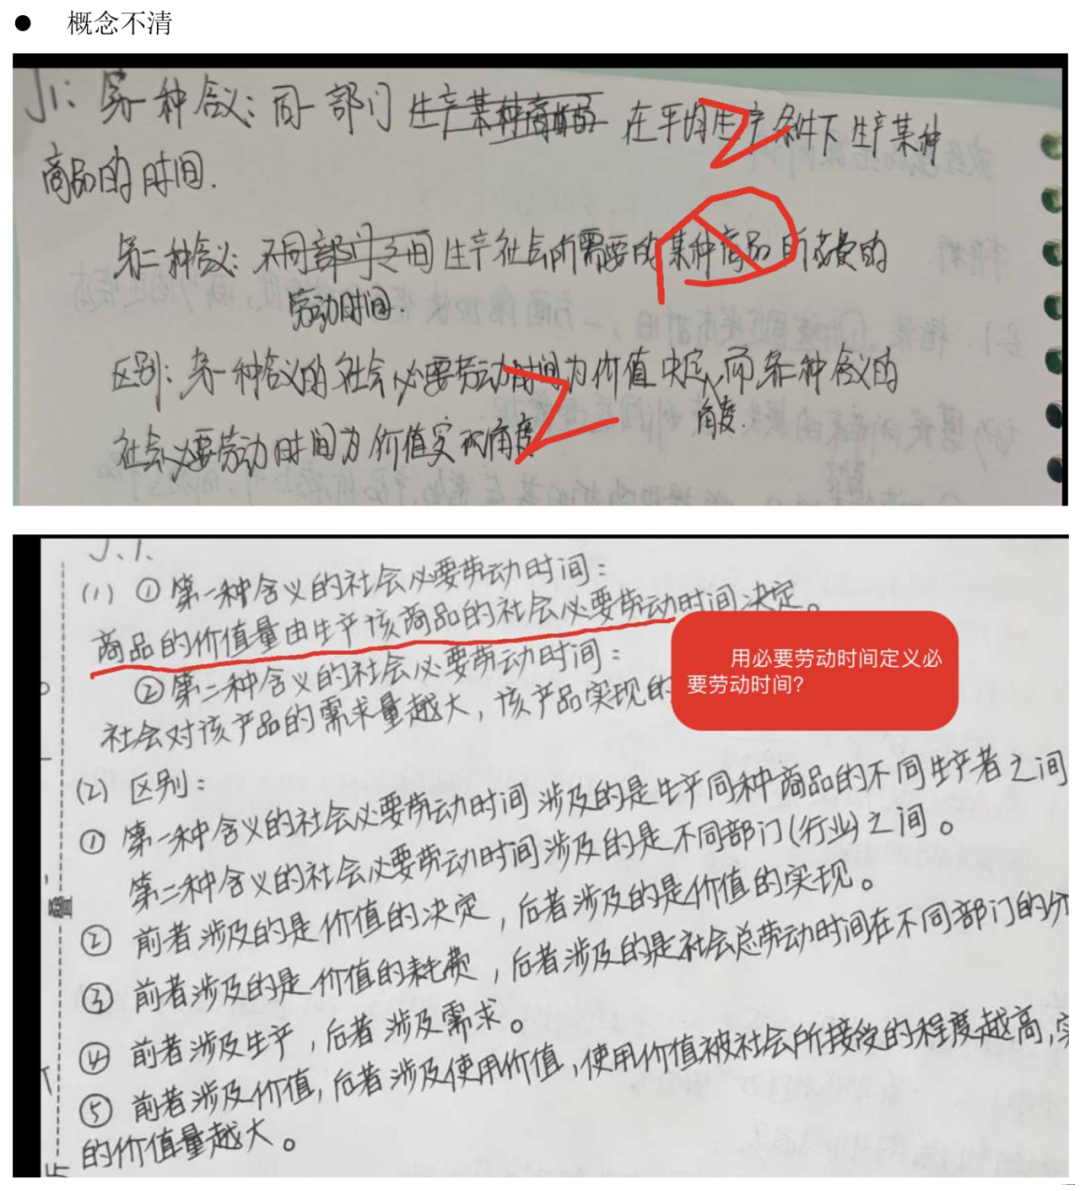 ● 概念不清
J1: 第一种含义:同一部门生产某种商品在平均生产条件下生产某种
商品的时间.
第二种含义:不同部门之间生产社会所需要的某种商品所花费的
劳动时间.
区别:第一种含义的社会必要劳动时间为价值决定,而第二种含义的
角度.
社会必要劳动时间为价值实现角度
J.1.
(1) ①第一种含义的社会必要劳动时间:
商品的价值量由生产该商品的社会必要劳动时间决定。
用必要劳动时间定义必
要劳动时间?
②第二种含义的社会必要劳动时间:
社会对该产品的需求量越大,该产品实现的
(2) 区别:
① 第一种含义的社会必要劳动时间涉及的是生产同种商品的不同生产者之间
第二种含义的社会必要劳动时间涉及的是不同部门(行业)之间。
② 前者涉及的是价值的决定,后者涉及的是价值的实现。
③ 前者涉及的是价值的耗费,后者涉及的是社会总劳动时间在不同部门的分
④ 前者涉及生产,后者涉及需求。
⑤ 前者涉及价值,后者涉及使用价值,使用价值被社会所接受的程度越高,实
的价值量越大。
叠